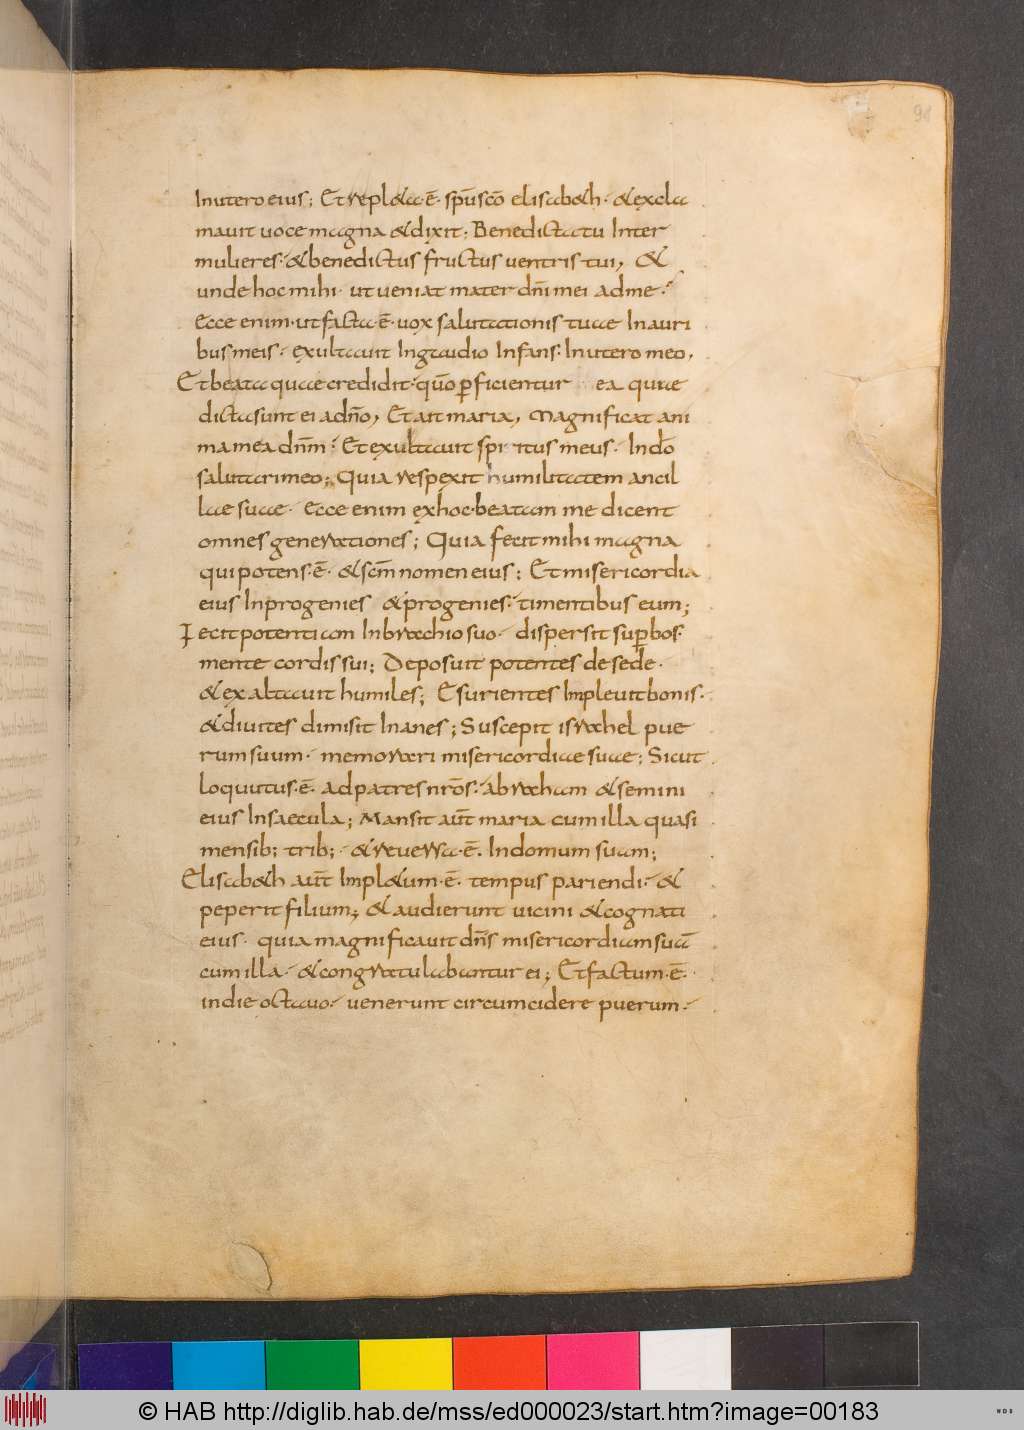 91
In utero eius; Et repl&a·ē· sp̄u sc̄o elisab&h· & excla
mavit voce magna & dixit; Benedicta tu Inter
mulieres· & benedictus fructus ventris tui, &
unde hoc mihi· ut veniat mater dn̄i mei ad me·
Ecce enim· ut facta·ē· vox salutationis tuae In auri
bus meis· exultavit In gaudio Infans· In utero meo,
Et beata quae credidit· qūo perficientur ea quae
dicta sunt ei a dn̄o, Et ait maria, Magnificat ani
ma mea dn̄m· Et exultavit spiritus meus· In dō
salutari meo; Quia respexit humilitatem ancil
lae suae· Ecce enim ex hoc· beatam me dicent
omnes generationes; Quia fecit mihi magna
qui potens·ē· & sc̄m nomen eius; Et misericordia
eius In progenies & progenies· timentibus eum;
Fecit potentiam In brachio suo· dispersit superbos·
mente cordis sui; Deposuit potentes de sede·
& exaltavit humiles; Esurientes Implevit bonis·
& divites dimisit Inanes; Suscepit israhel pue
rum suum· memorari misericordiae suae; Sicut
loquutus·ē· ad patres nr̄os· abraham & semini
eius In saecula; Mansit aūt maria cum illa quasi
mensib; trib;· & reversa·ē· In domum suam;
Elisab&h aūt Impl&um·ē· tempus pariendi· &
peperit filium; & audierunt vicini & cognati
eius· quia magnificavit dn̄s misericordiam suā
cum illa· & congratulabantur ei; Et factum·ē·
in die octavo· venerunt circumcidere puerum·
© HAB http://diglib.hab.de/mss/ed000023/start.htm?image=00183
WDB